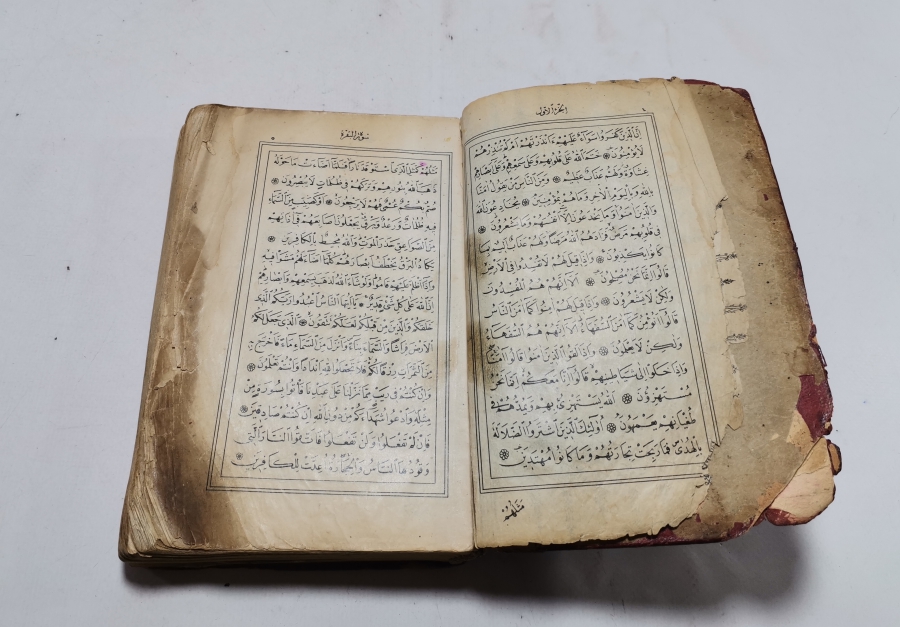 الجزء الاول
٤
اِنَّ الَّذِينَ كَفَرُوا سَوَاءٌ عَلَيْهِمْ ءَاَنْذَرْتَهُمْ اَمْ لَمْ تُنْذِرْهُمْ
لَا يُؤْمِنُونَ ۞ خَتَمَ اللهُ عَلَى قُلُوبِهِمْ وَعَلَى سَمْعِهِمْ وَعَلَى اَبْصَارِهِمْ
غِشَاوَةٌ وَلَهُمْ عَذَابٌ عَظِيمٌ ۞ وَمِنَ النَّاسِ مَنْ يَقُولُ اٰمَنَّا
بِاللهِ وَبِالْيَوْمِ الْاٰخِرِ وَمَا هُمْ بِمُؤْمِنِينَ ۞ يُخَادِعُونَ اللهَ
وَالَّذِينَ اٰمَنُوا وَمَا يَخْدَعُونَ اِلَّا اَنْفُسَهُمْ وَمَا يَشْعُرُونَ ۞
فِي قُلُوبِهِمْ مَرَضٌ فَزَادَهُمُ اللهُ مَرَضًا وَلَهُمْ عَذَابٌ اَلِيمٌ بِمَا
كَانُوا يَكْذِبُونَ ۞ وَاِذَا قِيلَ لَهُمْ لَا تُفْسِدُوا فِي الْاَرْضِ
قَالُوا اِنَّمَا نَحْنُ مُصْلِحُونَ ۞ اَلَا اِنَّهُمْ هُمُ الْمُفْسِدُونَ
وَلٰكِنْ لَا يَشْعُرُونَ ۞ وَاِذَا قِيلَ لَهُمْ اٰمِنُوا كَمَا اٰمَنَ النَّاسُ
قَالُوا اَنُؤْمِنُ كَمَا اٰمَنَ السُّفَهَاءُ اَلَا اِنَّهُمْ هُمُ السُّفَهَاءُ
وَلٰكِنْ لَا يَعْلَمُونَ ۞ وَاِذَا لَقُوا الَّذِينَ اٰمَنُوا قَالُوا اٰمَنَّا
وَاِذَا خَلَوْا اِلَى شَيَاطِينِهِمْ قَالُوا اِنَّا مَعَكُمْ اِنَّمَا نَحْنُ
مُسْتَهْزِؤُنَ ۞ اَللهُ يَسْتَهْزِئُ بِهِمْ وَيَمُدُّهُمْ فِي
طُغْيَانِهِمْ يَعْمَهُونَ ۞ اُولٰئِكَ الَّذِينَ اشْتَرَوُا الضَّلَالَةَ
بِالْهُدَى فَمَا رَبِحَتْ تِجَارَتُهُمْ وَمَا كَانُوا مُهْتَدِينَ ۞
مَثَلُهُمْ
سورة البقرة
٥
مَثَلُهُمْ كَمَثَلِ الَّذِي اسْتَوْقَدَ نَارًا فَلَمَّا اَضَاءَتْ مَا حَوْلَهُ
ذَهَبَ اللهُ بِنُورِهِمْ وَتَرَكَهُمْ فِي ظُلُمَاتٍ لَا يُبْصِرُونَ ۞
صُمٌّ بُكْمٌ عُمْيٌ فَهُمْ لَا يَرْجِعُونَ ۞ اَوْ كَصَيِّبٍ مِنَ السَّمَاءِ
فِيهِ ظُلُمَاتٌ وَرَعْدٌ وَبَرْقٌ يَجْعَلُونَ اَصَابِعَهُمْ فِي اٰذَانِهِمْ
مِنَ الصَّوَاعِقِ حَذَرَ الْمَوْتِ وَاللهُ مُحِيطٌ بِالْكَافِرِينَ ۞
يَكَادُ الْبَرْقُ يَخْطَفُ اَبْصَارَهُمْ كُلَّمَا اَضَاءَ لَهُمْ مَشَوْا فِيهِ
وَاِذَا اَظْلَمَ عَلَيْهِمْ قَامُوا وَلَوْ شَاءَ اللهُ لَذَهَبَ بِسَمْعِهِمْ وَاَبْصَارِهِمْ
اِنَّ اللهَ عَلَى كُلِّ شَيْءٍ قَدِيرٌ ۞ يَا اَيُّهَا النَّاسُ اعْبُدُوا رَبَّكُمُ الَّذِي
خَلَقَكُمْ وَالَّذِينَ مِنْ قَبْلِكُمْ لَعَلَّكُمْ تَتَّقُونَ ۞ اَلَّذِي جَعَلَ لَكُمُ
الْاَرْضَ فِرَاشًا وَالسَّمَاءَ بِنَاءً وَاَنْزَلَ مِنَ السَّمَاءِ مَاءً فَاَخْرَجَ بِهِ
مِنَ الثَّمَرَاتِ رِزْقًا لَكُمْ فَلَا تَجْعَلُوا لِلّٰهِ اَنْدَادًا وَاَنْتُمْ تَعْلَمُونَ ۞
وَاِنْ كُنْتُمْ فِي رَيْبٍ مِمَّا نَزَّلْنَا عَلَى عَبْدِنَا فَأْتُوا بِسُورَةٍ مِنْ
مِثْلِهِ وَادْعُوا شُهَدَاءَكُمْ مِنْ دُونِ اللهِ اِنْ كُنْتُمْ صَادِقِينَ ۞
فَاِنْ لَمْ تَفْعَلُوا وَلَنْ تَفْعَلُوا فَاتَّقُوا النَّارَ الَّتِي
وَقُودُهَا النَّاسُ وَالْحِجَارَةُ اُعِدَّتْ لِلْكَافِرِينَ ۞